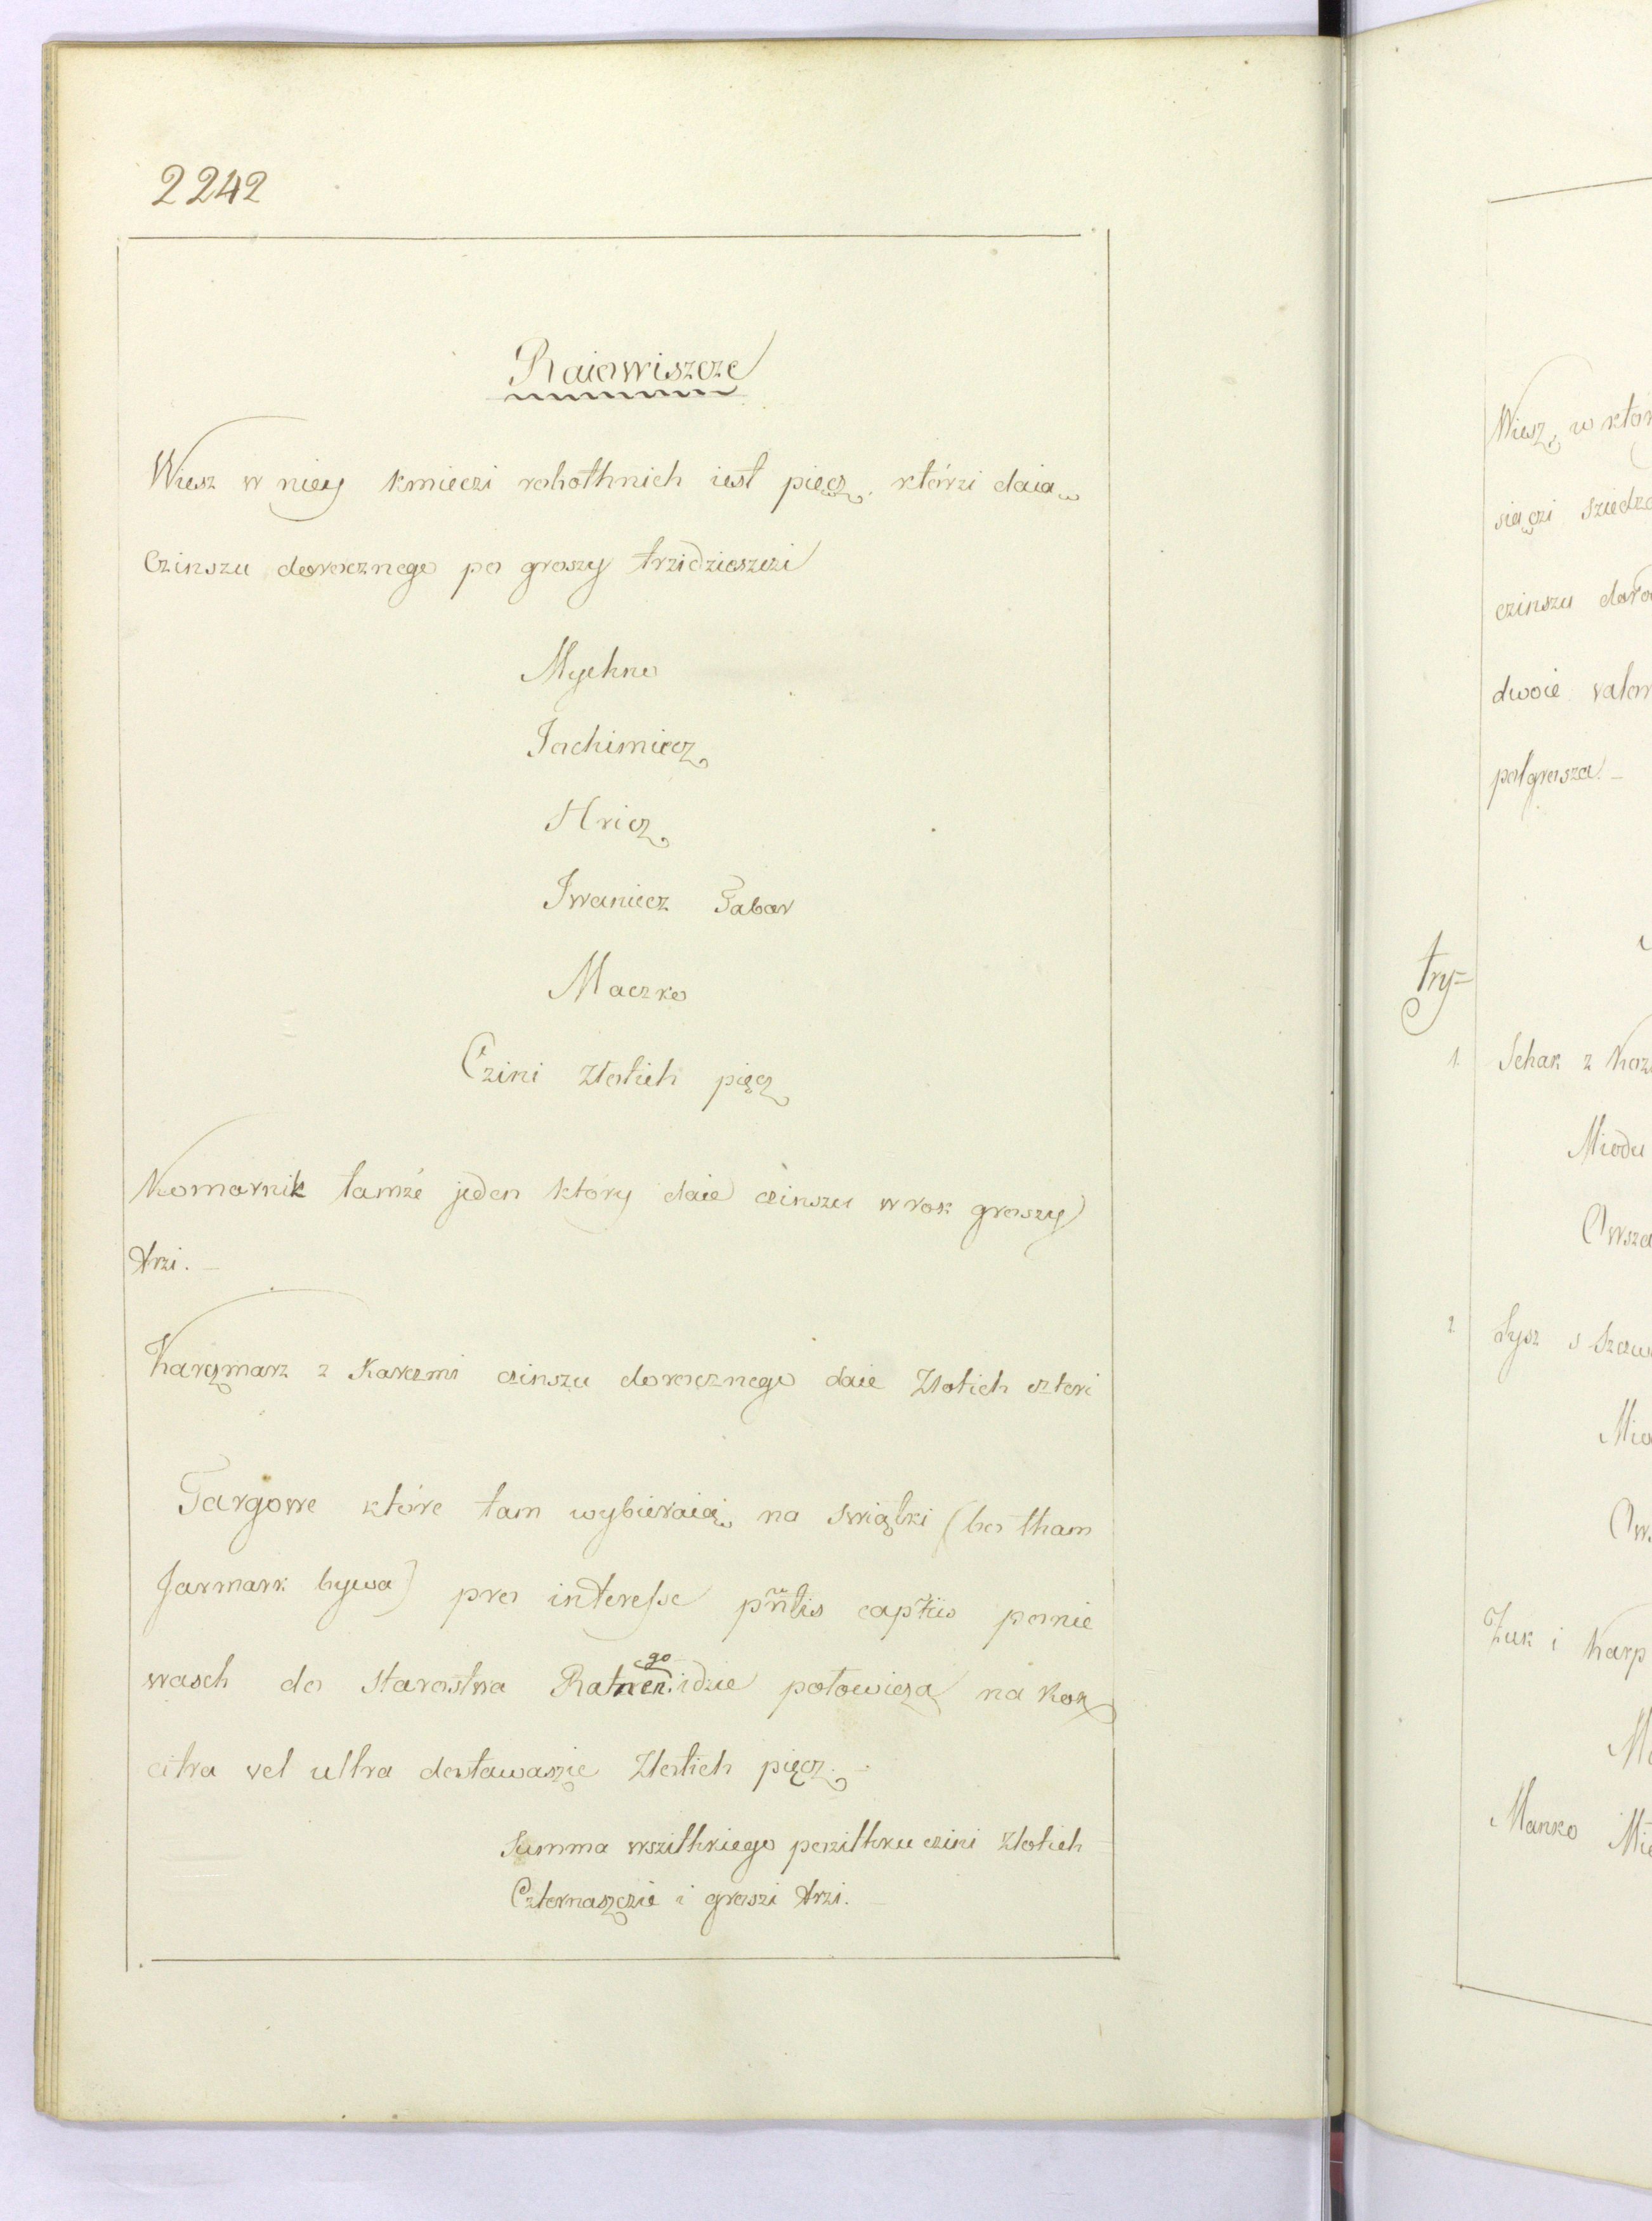 2242
Raiowiszcze
Wiesz w niey kmieczi robothnich iest pięcz, którzi daią
Czinszu dorocznego po groszy trzidzieszczi
Mychno
Jachimiecz
Hricz
Iwaniecz Tabor
Maczko
Czini złotich pięcz
Komornik tamże jeden który daie czinszu w rok groszy
trzi. –
Karczmarz z Karczmi czinszu dorocznego daie Złotich czteri
Targowe które tam wybieraią na swiątki (bo tham
Jarmark bywa) pro interesse pñtis captiis ponie
wasch do starostwa Ratnen.go idzie połowicza na Rok
citra vel ultra dostawaszie Złotich pięcz. –
Summa wszitkiego pozithku czini złotich
Czternaszczie i groszi trzi. –
Wiesz, w któr
siączi sziedz
czinszu doro
dwoie
połgrosza. –
try=
1. Schak z Koz
Miodu
Owsza
2. Łysz s Szaw
Mio
Ows
Żuk i Karp
Mi
Manko Mie